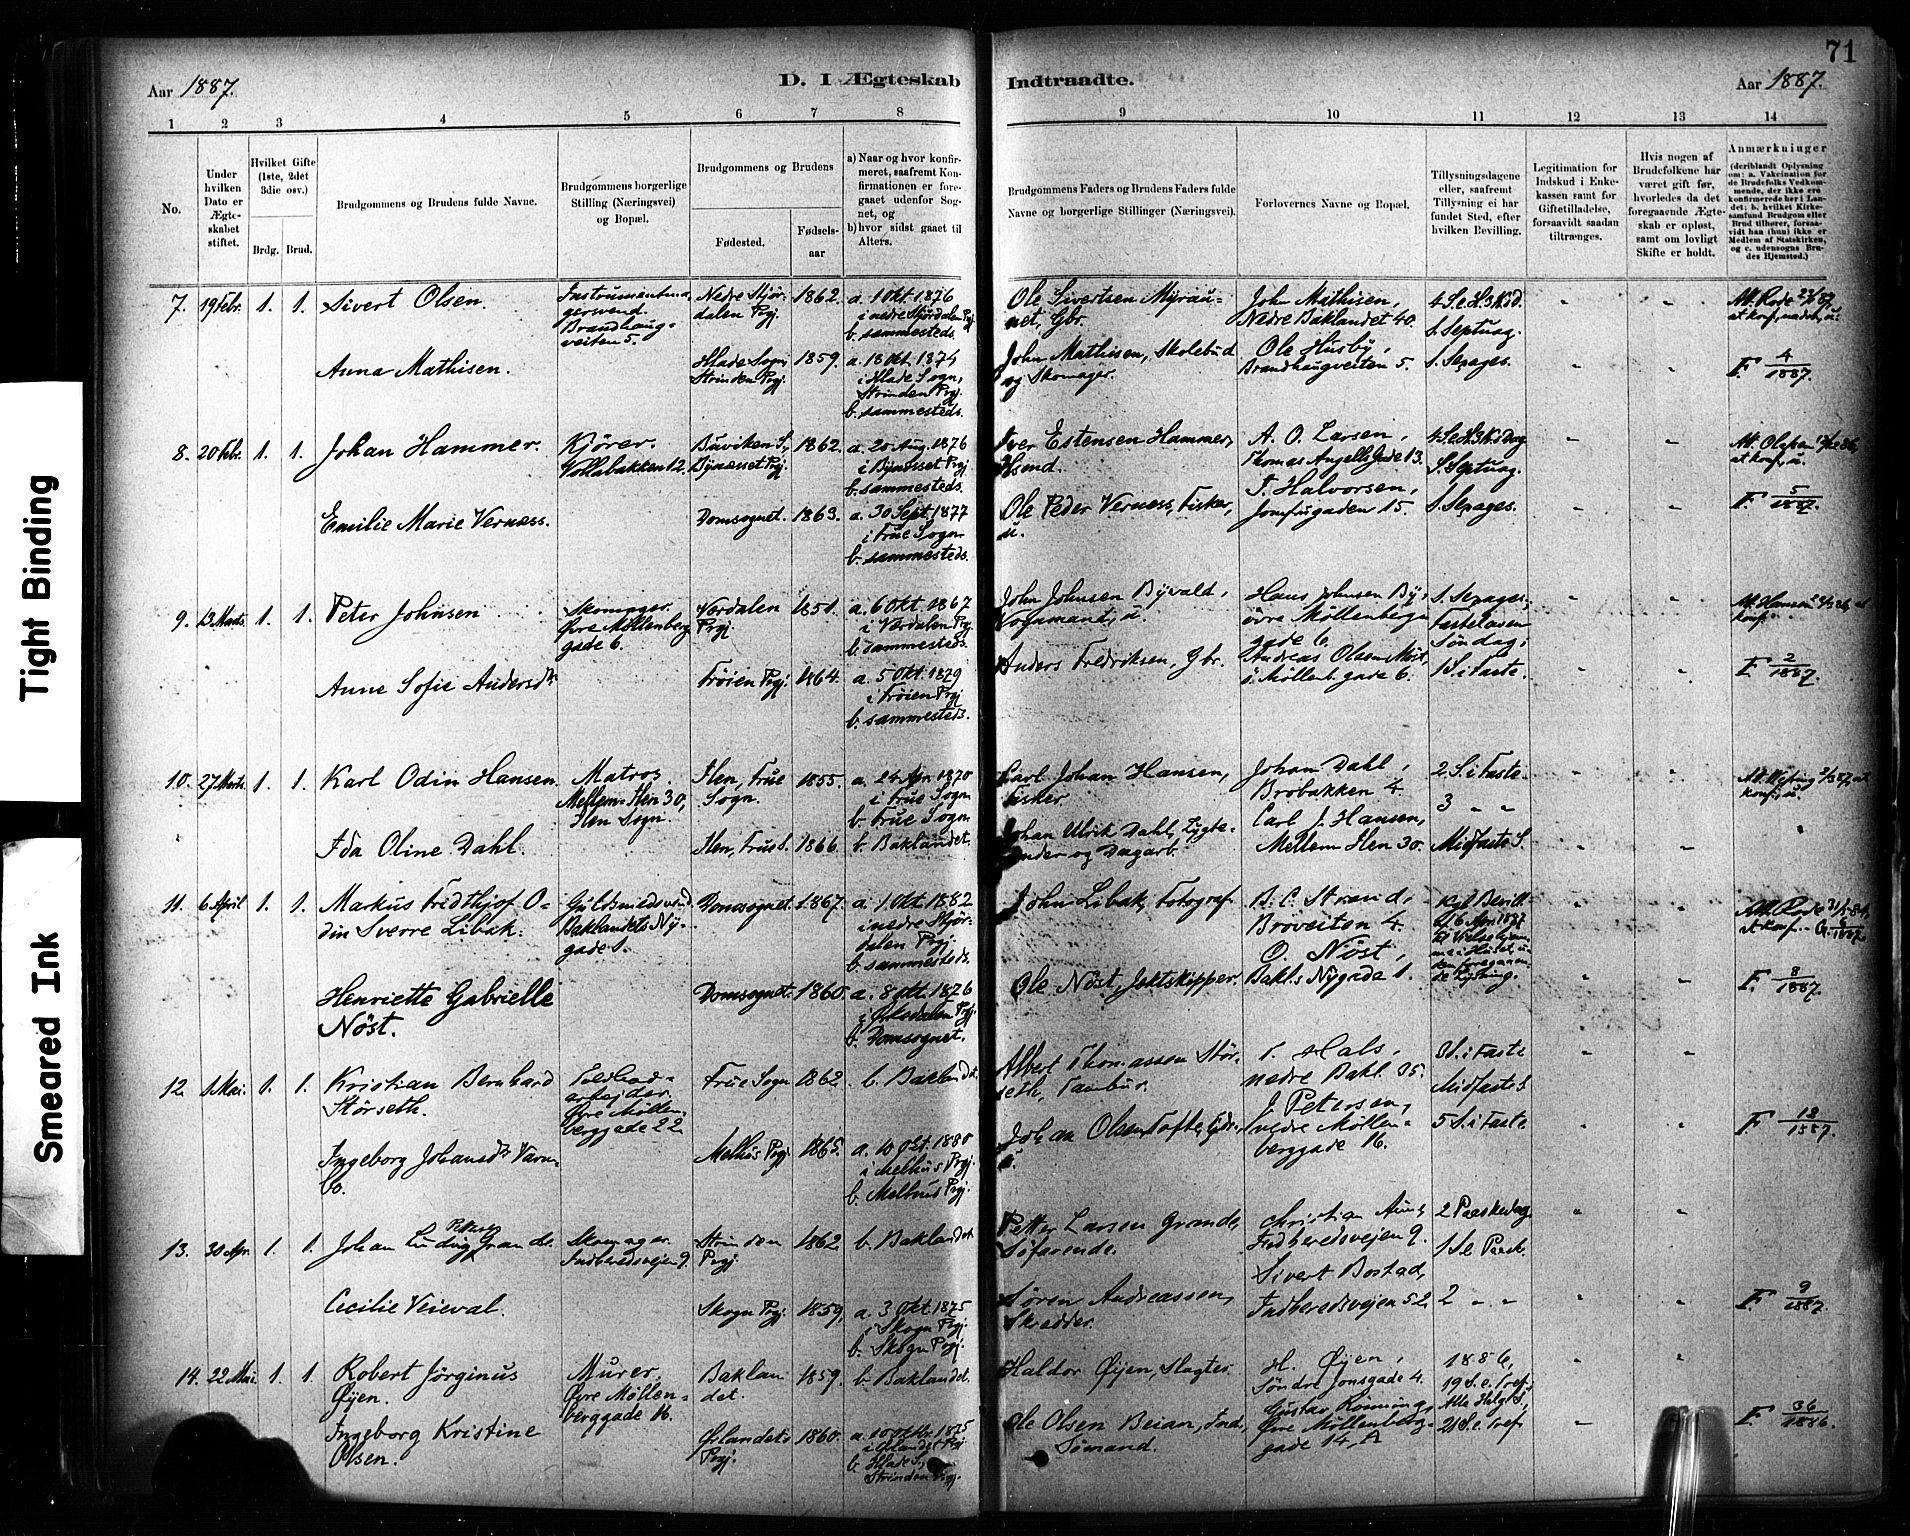 71
Aar 1887.
D. I Ægteskab Indtraadte.
Aar 1887.
1 2 3 4 5 6 7 8 9 10 11 12 13 14
No.
Under hvilken Dato er Ægteskabet stiftet.
Hvilket Gifte (1ste, 2det 3die osv.)
Brdg. Brud.
Brudgommens og Brudens fulde Navne.
Brudgommens borgerlige Stilling (Næringsvei) og Bopæl.
Brudgommens og Brudens
Fødested.
Fødselsaar
a) Naar og hvor konfirmeret, saafremt Konfirmationen er foregaaet udenfor Sognet, og
b) hvor sidst gaaet til Alters.
Brudgommens Faders og Brudens Faders fulde Navne og borgerlige Stillinger (Næringsvei).
Forlovernes Navne og Bopæl.
Tillysningsdagene eller, saafremt Tillysning ei har fundet Sted, efter hvilken Bevilling.
Legitimation for Indskud i Enkekassen samt for Giftetilladelse, forsaavidt saadan tiltrænges.
Hvis nogen af Brudefolkene har været gift før, hvorledes da det foregaaende Ægteskab er opløst, samt om lovligt Skifte er holdt.
Anmærkninger
(deriblandt Oplysning om: a. Vakcination for de Brudefolks Vedkommende, der ikke ere konfirmerede her i Landet; b. hvilket Kirkesamfund Brudgom eller Brud tilhører, forsaavidt han (hun) ikke er Medlem af Statskirken, og c. udensogns Brudes Hjemsted.)
7. 19 Febr. 1. 1. Sivert Olsen. Brandhaugveiten 5. Nedre Stjørdalen Prgj. 1862. a. 1 Okt. 1876 i nedre Stjørdalen Prgj. b. sammesteds. Ole Sivertsen Myraunet, Gbr. John Mathisen, Nedre Baklandet 40. S. Septuag.
Anna Mathisen. Hlade Sogn Strinden Prgj. 1859. a. 18 Okt. 1874 i Hlade Sogn, Strinden Prgj. b. sammesteds. John Mathisen, og Skomager. Ole Husby, Brandhaugveiten 5. S. Sexages. F. 4/1887.
8. 20 Febr. 1. 1. Johan Hammer. Kjører. Vollabakken 12. Buviken S., Bynæsset Prgj. 1862. a. 20 Aug. 1876 i Bynæsset Prgj b. sammesteds. Iver Estensen Hammer, Hsmd. A. O. Larsen, Thomas Angells Gade 13. S. Septuag.
Emilie Marie Vernæss. Domsognet. 1863. a. 30 Sept. 1877 i Frue Sogn. b. sammesteds. Ole Peder Vernæss, Fisker, u. I. Halvorsen, Jomfrugaden 15. S. Sexages. F. 5/1887.
9. 13 Marts. 1. 1. Peter Johnsen Skomager. Øvre Møllenberg gade 6. Værdalen Prgj. 1851. a. 6 Okt. 1867 i Værdalen Prgj b. sammesteds. John Johnsen Byvald, u. Hans Johnsen By, øvre Møllenberggade 6. S. Sexages., Fastelavn Søndag,
Anne Sofie Andersdr. Frøien Prgj. 1864. a. 5 Okt. 1879 i Frøien Prgj b. sammesteds. Anders Fredriksen, Gbr. Andreas Olsen i Møllenb. gade 6. 1 S. i Faste. F. 2/1887.
10. 27 Marts. 1. 1. Karl Odin Hansen Matros. Mellem-Ilen 30, Ilen Sogn. Ilen, Frue Sogn. 1855. a. 24 Apr. 1870 i Frue Sogn b. Frue Sogn. Carl Johan Hansen, Fisker. Johan Dahl, Brobakken 4. 2 S. i Faste. 3 " "
Ida Oline Dahl. Ilen, Frue S. 1866. b. Baklandet. Johan Ulrik Dahl, Lygtetænder og Dagarb. Carl J. Hansen, Mellem Ilen 30. Midfaste S.
11. 6 April 1. 1. Markus Fridthjof Odin Sverre Libak. Guldsmedsvend. Baklandets Nygade 1. Domsognet. 1867. a. 1 Okt. 1882 i nedre Stjørdalen Prgj. b. sammesteds. John Libak, Fotograf B. C. Strand, Broveiten 4.
Henriette Gabrielle Nøst. Domsognet. 1860. a. 8 Okt. 1876 b. Domsognet. Ole Nøst, Jektskipper. O. Nøst, Bakl.s Nygade 1. F. 8/1887
12. 1 Mai. 1. 1. Kristian Bernhard Størseth. arbejder. Øvre Møllenberggade 22. Frue Sogn 1862. b. Baklandet. Albert Thomassen Størseth, Tambur. T. Hals, nedre Bakl. 35. 3 S. i Faste Midfaste S.
Ingeborg Johansdr. Varmbo. Melhus Prgj. 1865. a. 10 Okt. 1880 i Melhus Prgj. b. Melhus Prgj. Johan Olsen Tofte, Gbr., u. J. Petersen, nedre Møllenberggade 16. 5 S. i Faste F. 13/1887.
13. 30 Apr. 1. 1. Johan Ludvig Petter Grande. Skomager. Indherredsvejen 9. Strinden Prgj. 1862. b. Baklandet. Petter Larsen Grande, Søfarende. Christian Aune, Indheredsvejen 9. 2 Paaskedag 1 S. e. Paask.
Cecilie Veieval. Skogn Prgj. 1859, a. 3 Okt. 1875 i Skogn Prgj. b. Skogn Prgj. Søren Andreassen, Skrædder. Sivert Bostad, Indheredsvejen 52. 2 " " F. 9/1887.
14. 22 Mai. 1. 1. Robert Jørginus Øyen. Murer. Øvre Møllenberggade 16. Baklandet. 1859. b. Baklandet. Haldor Øyen, Slagter. H. Øyen, Søndre Jonsgade 4. 1886, 19 S. e. Tref.
Ingeborg Kristine Olsen. Ørlandets Prgj. 1860. a. 10 Oktbr. 1875 i Ørlandet Prgj b. Hlade S., Strinden Prgj. Ole Olsen Beian, Ind., Sømand. Gustav Rønning, Øvre Møllenberggade 14, A Alle Helg. S., 21 S. e. Tref F. 36/1886.
Tight Binding
Smeared Ink